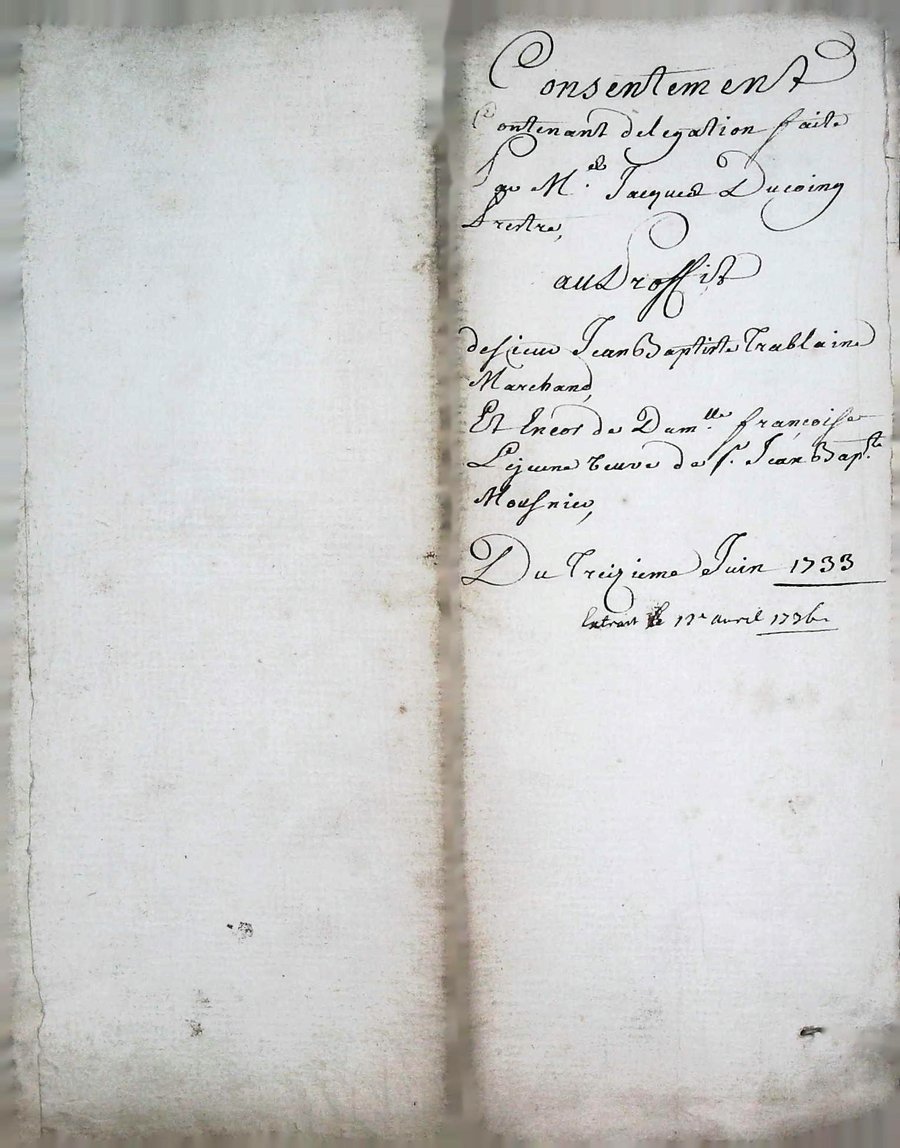 Consentement
Contenant delegation faite
Par M.e Jacques Ducoing
Prestre,
au Proffit
de sieur Jean Baptiste Trablaine
Marchand,
Et Encor de Dam.lle françoise
Lejeune veuve de s.r Jean Bap.te
Mousnier,
Du Treizieme Juin 1733
Extrait le avril 1736